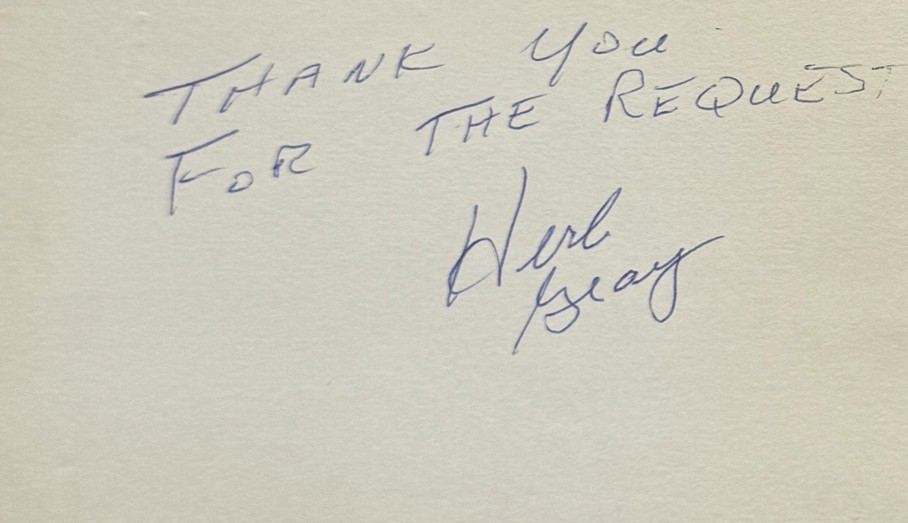 THANK YOU
FOR THE REQUEST
Herb
Gray